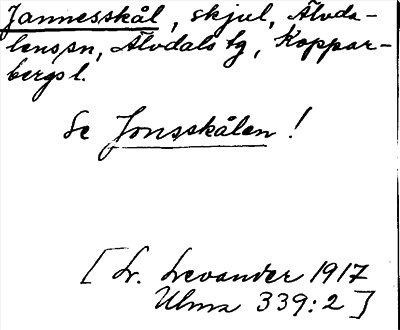 Jannesskål, skjul, Älvda-
lens sn, Älvdals tg, Koppar-
bergs l.
Se Jonsskålen!
[L. Levander 1917
Ulma 339:2]